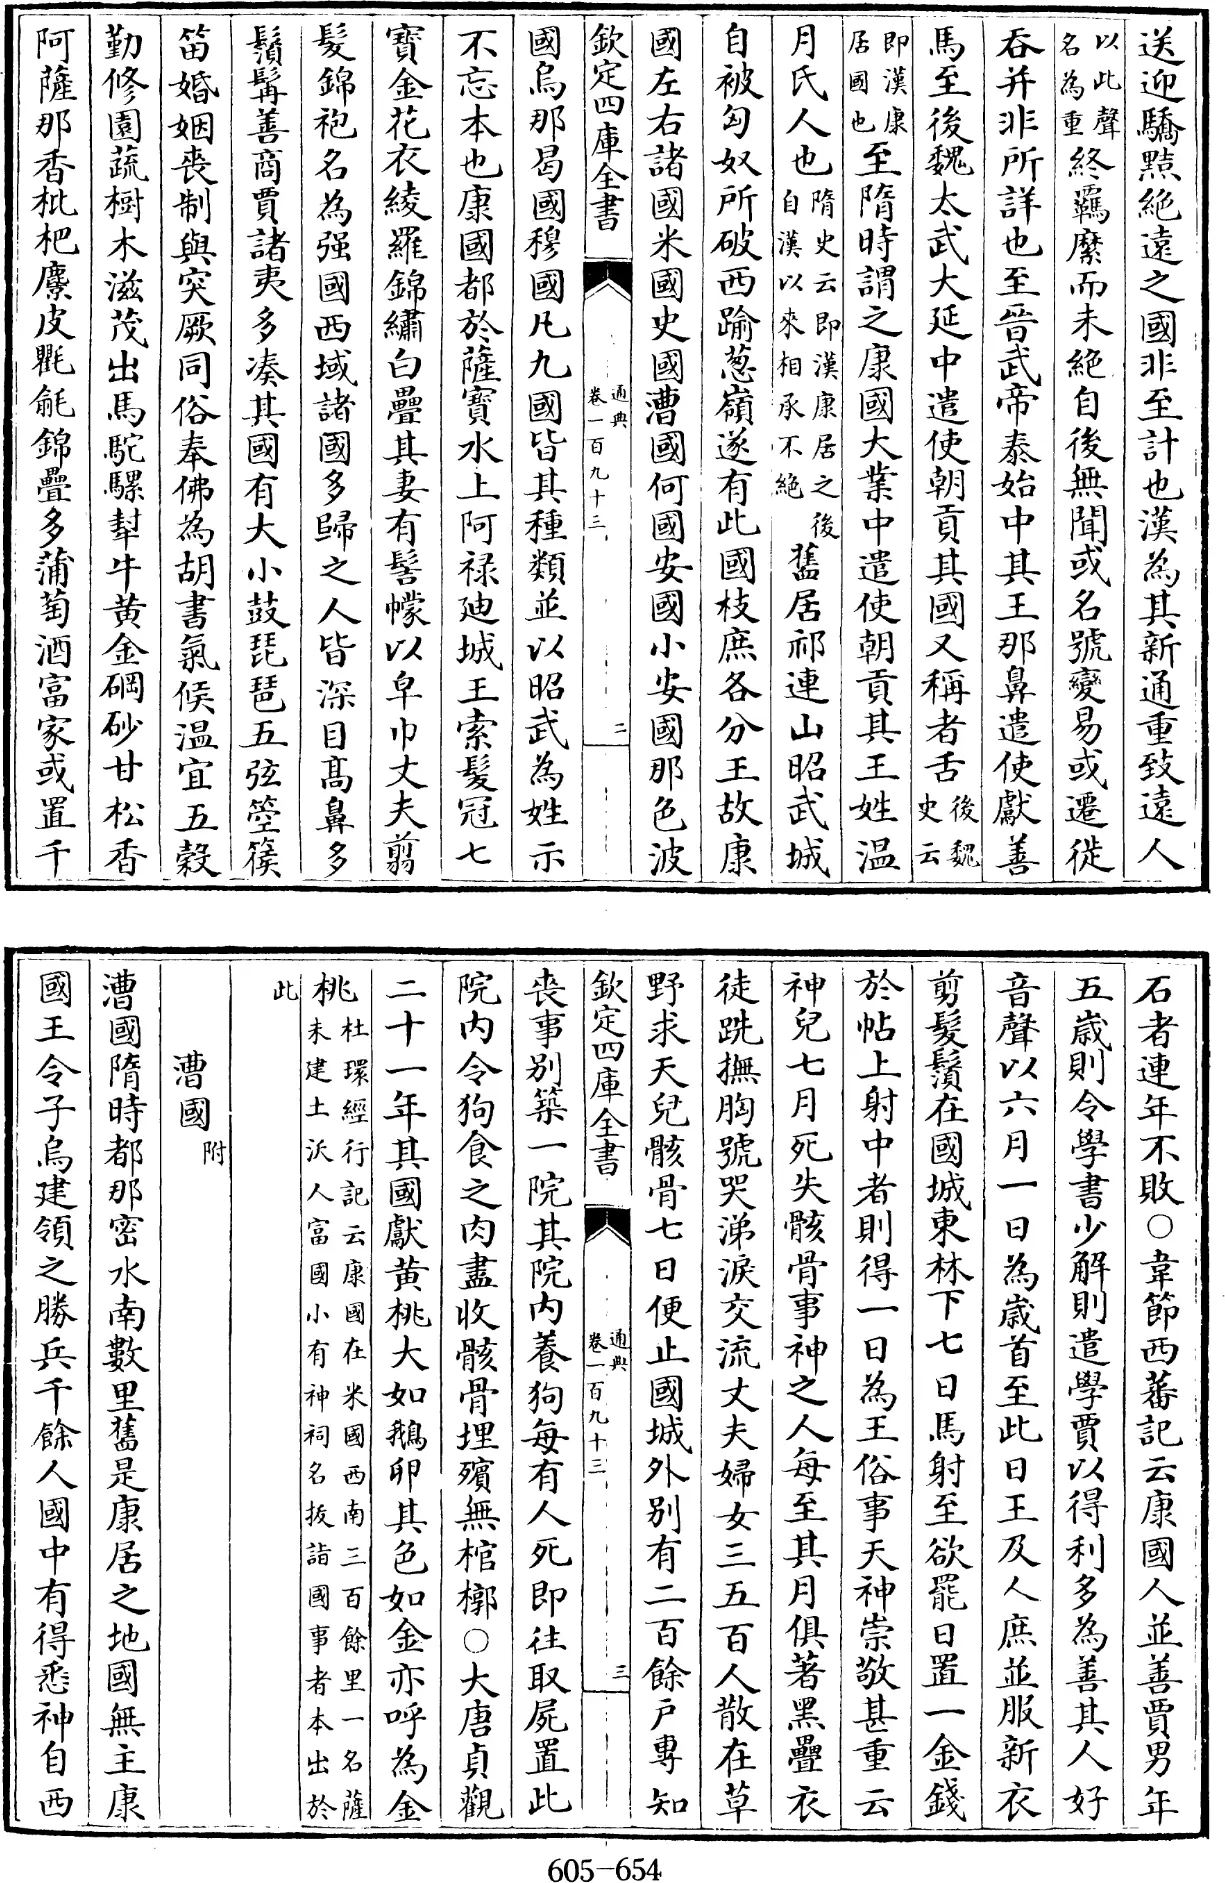 送迎驕黠絶遠之國非至計也漢為其新通重致遠人
以此聲名為重終羈縻而未絶自後無聞或名號變易或遷徙
吞并非所詳也至晉武帝泰始中其王那鼻遣使獻善
馬至後魏太武大延中遣使朝貢其國又稱者舌後魏史云
即漢康居國也至隋時謂之康國大業中遣使朝貢其王姓温
月氏人也隋史云即漢康居之後自漢以來相承不絶舊居祁連山昭武城
自被匈奴所破西踰葱嶺遂有此國枝庶各分王故康
國左右諸國米國史國漕國何國安國小安國那色波
欽定四庫全書
通典
卷一百九十三
二
國烏那曷國穆國凡九國皆其種類並以昭武為姓示
不忘本也康國都於薩寶水上阿禄廸城王索髮冠七
寶金花衣綾羅錦繡白疊其妻有髻幪以皁巾丈夫翦
髮錦袍名為强國西域諸國多歸之人皆深目髙鼻多
鬚髯善商賈諸夷多凑其國有大小鼓琵琶五弦箜篌
笛婚姻喪制與突厥同俗奉佛為胡書氣候温宜五穀
勤修園蔬樹木滋茂出馬駝騾犎牛黄金硇砂甘松香
阿薩那香枇杷麖皮氍毹錦疊多蒲萄酒富家或置千
石者連年不敗○韋節西蕃記云康國人並善賈男年
五歲則令學書少解則遣學賈以得利多為善其人好
音聲以六月一日為歲首至此日王及人庶並服新衣
剪髮鬚在國城東林下七日馬射至欲罷日置一金錢
於帖上射中者則得一日為王俗事天神崇敬甚重云
神兒七月死失骸骨事神之人每至其月俱著黑疊衣
徒跣撫胸號哭涕淚交流丈夫婦女三五百人散在草
野求天兒骸骨七日便止國城外别有二百餘户專知
欽定四庫全書
通典
卷一百九十三
三
喪事别築一院其院内養狗每有人死即往取屍置此
院内令狗食之肉盡收骸骨埋殯無棺槨○大唐貞觀
二十一年其國獻黄桃大如鵝卵其色如金亦呼為金
桃杜環經行記云康國在米國西南三百餘里一名薩末建土沃人富國小有神祠名拔詣國事者本出於
此
漕國附
漕國隋時都那密水南數里舊是康居之地國無主康
國王令子烏建領之勝兵千餘人國中有得悉神自西
605-654